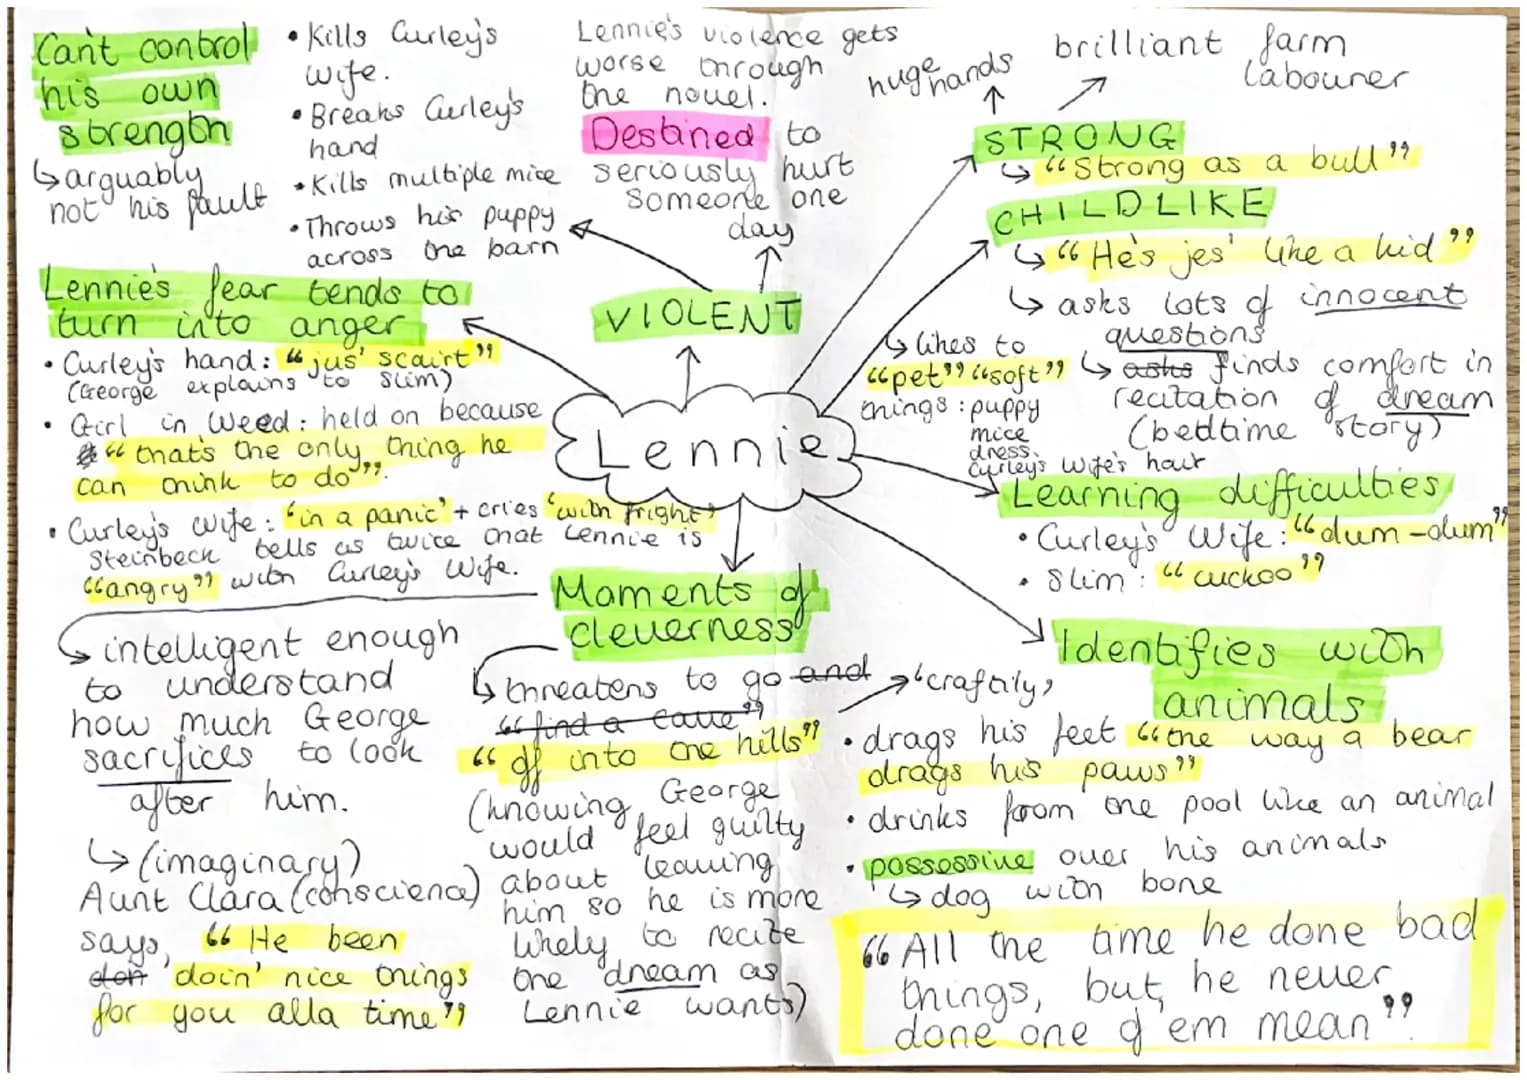 Can't control
his own
strength
↳ arguably
not his fault
• Kills Curley's
wife.
• Breaks Curley's
hand
• Kills multiple mice
• Throws his puppy
across the barn
Lennie's violence gets
worse through
the novel.
Destined to
seriously hurt
someone one
day
VIOLENT
huge hands
brilliant farm
labourer
STRONG
↳ "Strong as a bull"
CHILDLIKE
↳ "He's jes' like a kid"
↳ asks lots of innocent
questions
↳ asks finds comfort in
recitation of dream
(bedtime story)
↳ likes to
"pet" "soft"
things: puppy
mice
dress
Curley's Wife's hair
Lennie's fear tends to
turn into anger
• Curley's hand: "jus' scairt"
(George explains to Slim)
• Girl in Weed: held on because
"that's the only thing he
can think to do".
• Curley's Wife: 'in a panic' + cries 'with fright'
Steinbeck tells us twice that Lennie is
"angry" with Curley's Wife.
Lennie
Learning difficulties
• Curley's Wife: "dum-dum"
• Slim: "cuckoo"
Moments of
cleverness
↳ intelligent enough
to understand
how much George
sacrifices to look
after him.
↳ (imaginary)
Aunt Clara (conscience)
says, "He been
don 'doin' nice things
for you alla time"
↳ threatens to go and
"find a cave"
"off into the hills"
(knowing George
would feel guilty
about leaving
him so he is more
likely to recite
the dream as
Lennie wants)
→ 'craftily'
Identifies with
animals
• drags his feet "the way a bear
drags his paws"
• drinks from the pool like an animal
• possessive over his animals
↳ dog with bone
"All the time he done bad
things, but he never
done one of 'em mean".